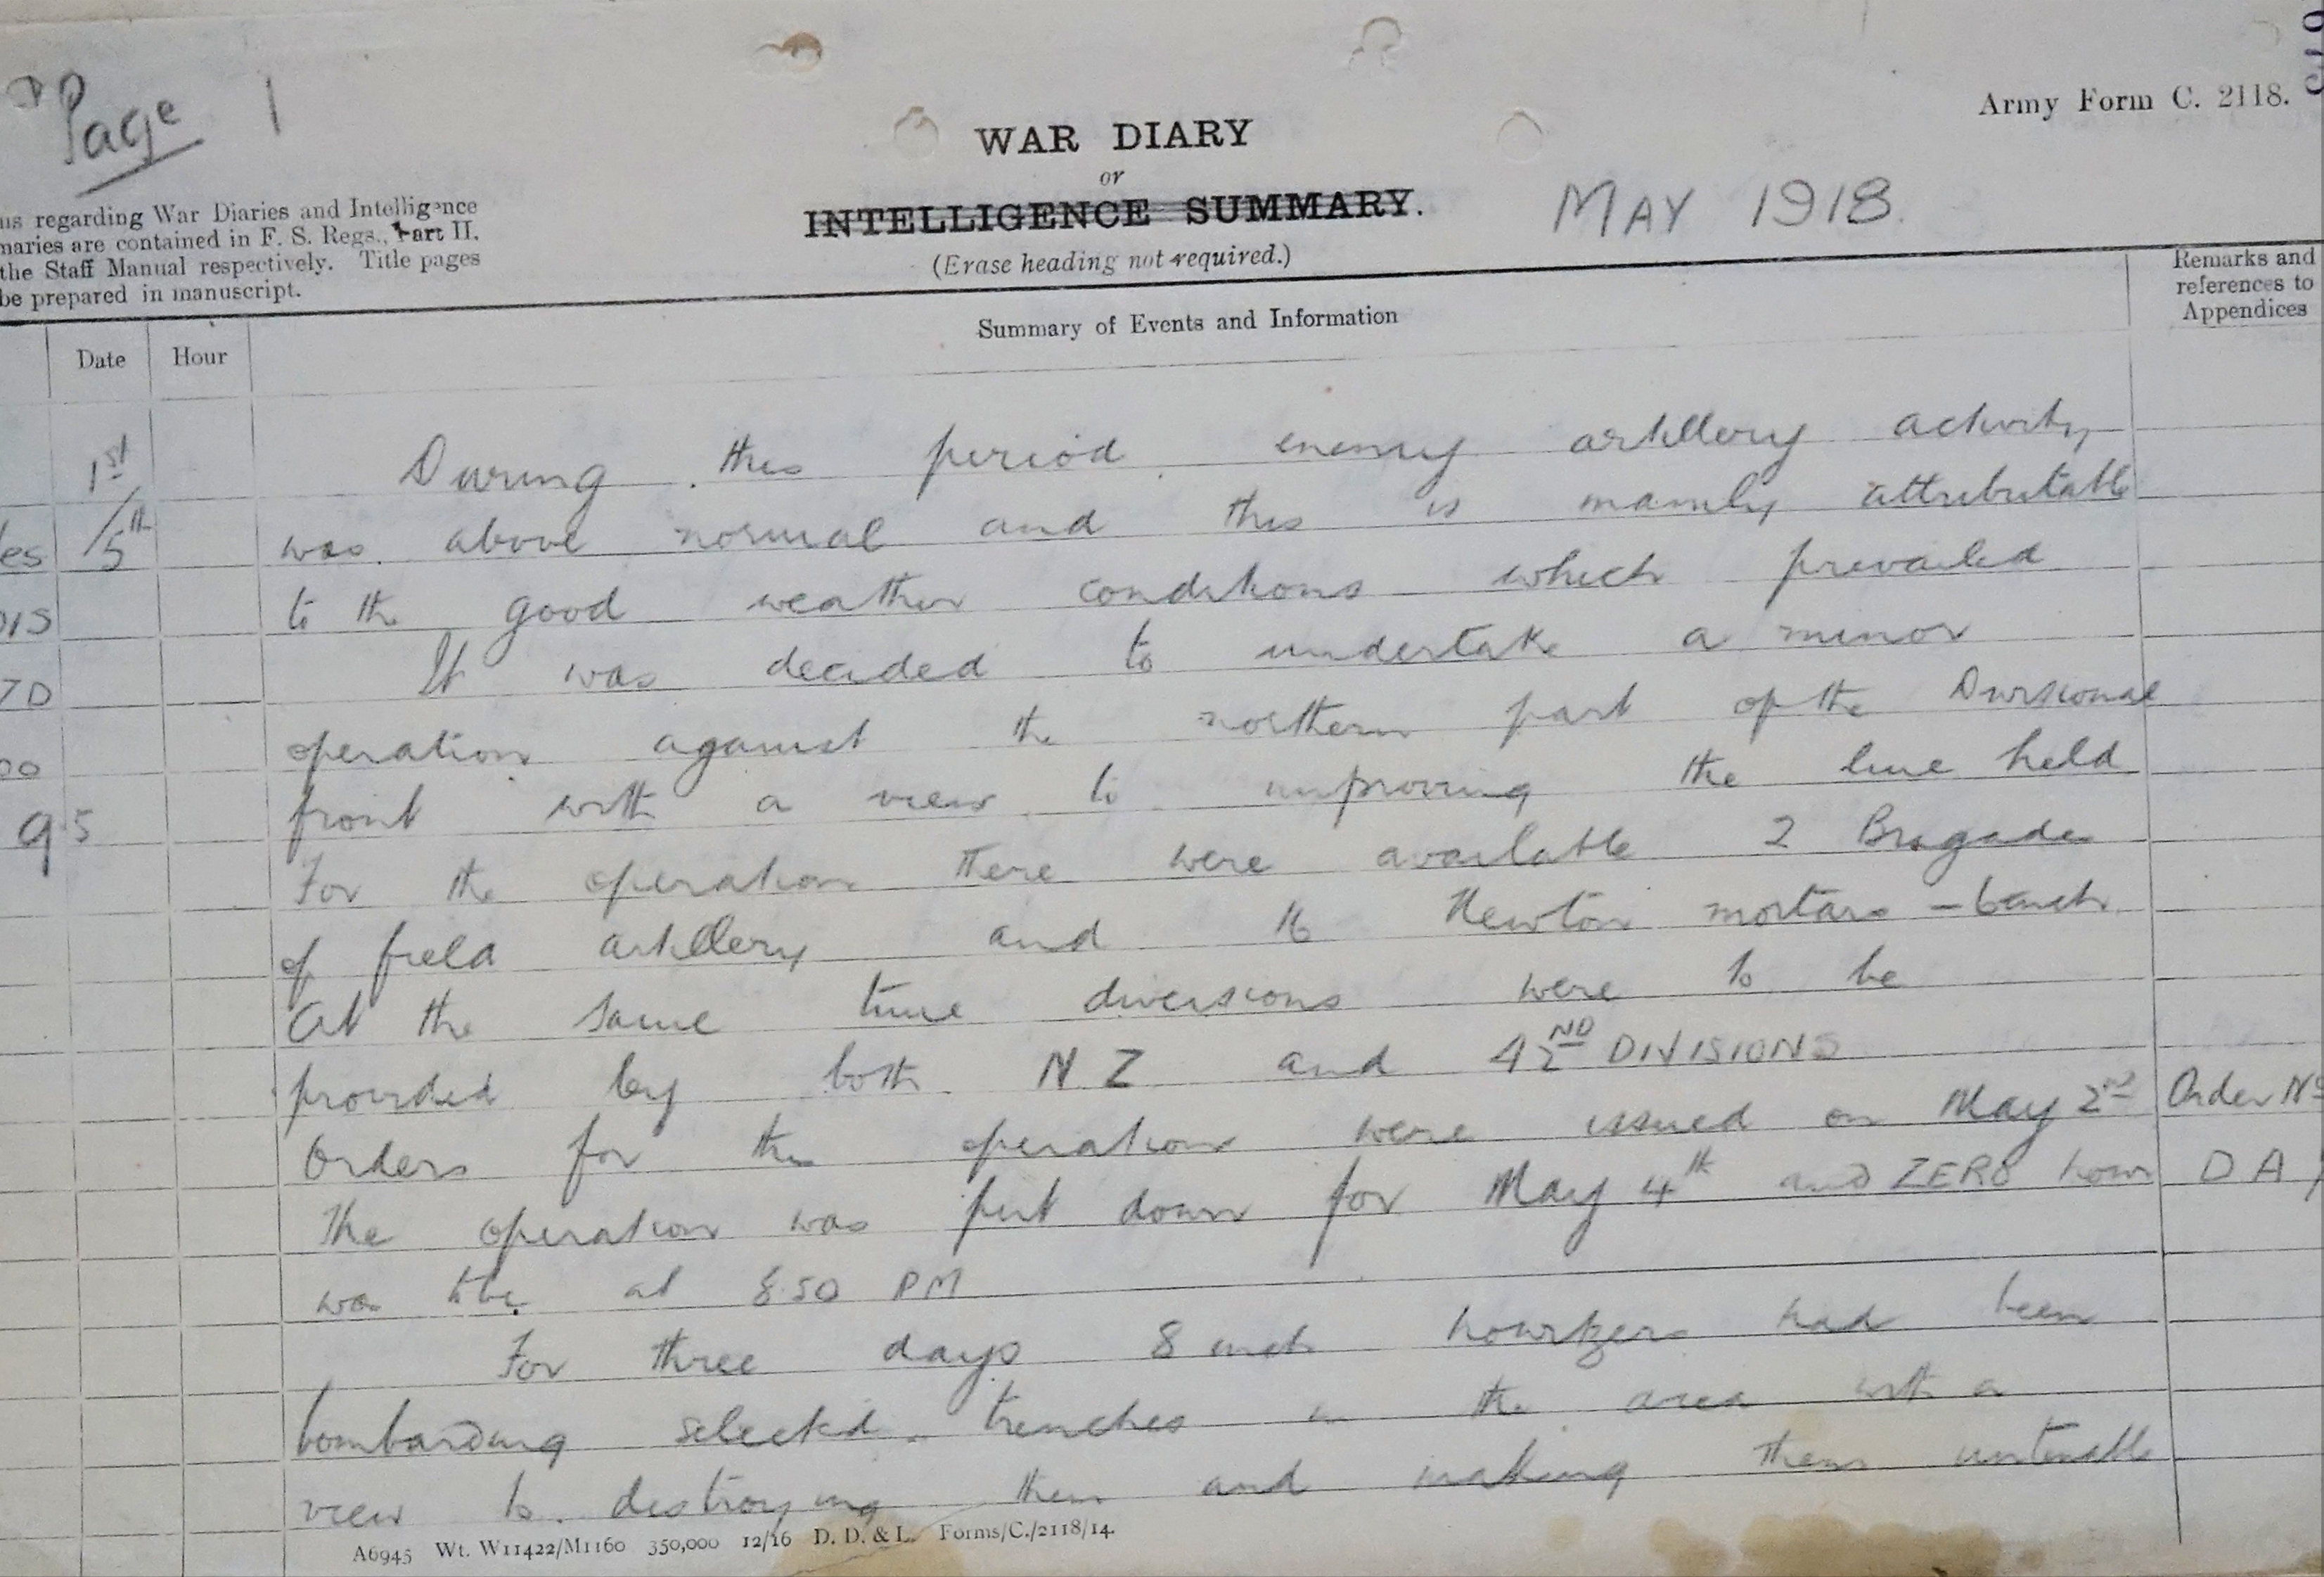 Page 1
Army Form C. 2118.
WAR DIARY
or
INTELLIGENCE SUMMARY.
(Erase heading not required.)
MAY 1918.
regarding War Diaries and Intelligence
maries are contained in F. S. Regs., Part II.
the Staff Manual respectively. Title pages
be prepared in manuscript.
Date
Hour
Summary of Events and Information
Remarks and
references to
Appendices
1st
/5th
During this period enemy artillery activity
was above normal and this is mainly attributable
to the good weather conditions which prevailed
It was decided to undertake a minor
operation against the northern part of the Divisional
front with a view to improving the line held
For the operation there were available 2 Brigades
of field artillery and Newton mortars - 6 inch
At the same time diversions were to be
provided by both N Z and 42ND DIVISIONS
Orders for the operation were issued on May 2nd Order No
The operation was put down for May 4th and ZERO hour D A
was to be at 8.50 PM
For three days 8 inch howitzers had been
bombarding selected trenches in the area with a
view to destroying them and making them untenable
A6945 Wt. W11422/M1160 350,000 12/16 D. D. & L. Forms/C./2118/14.